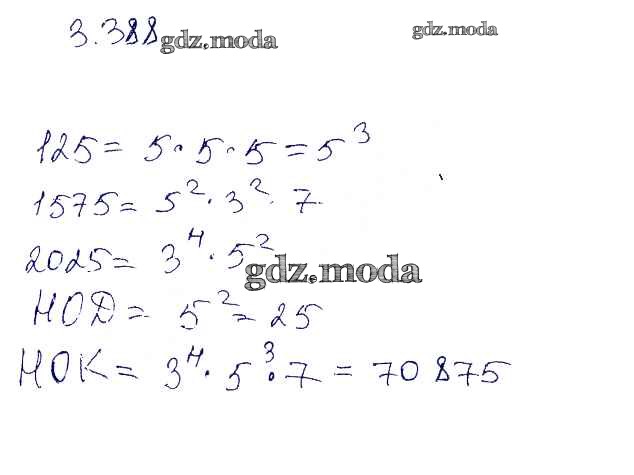 3.388 gdz.moda gdz.moda
125 = 5 · 5 · 5 = 5³
1575 = 5² · 3² · 7
2025 = 3⁴ · 5²
gdz.moda
НОД = 5² = 25
НОК = 3⁴ · 5³ · 7 = 70 875